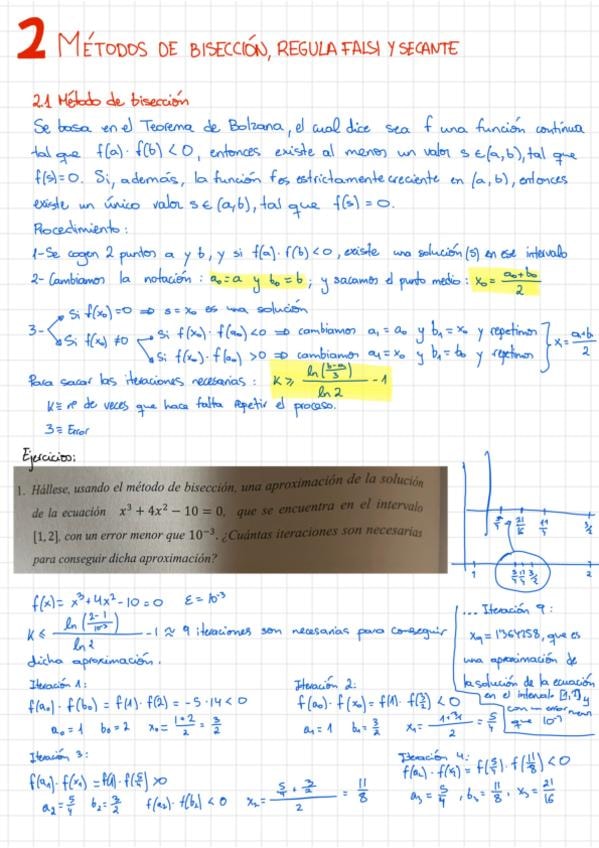 2 MÉTODOS DE BISECCIÓN, REGULA FALSI Y SECANTE
2.1 Método de bisección
Se basa en el Teorema de Bolzano, el cual dice sea f una función continua
tal que f(a)·f(b)<0, entonces existe al menos un valor s∈(a,b), tal que
f(s)=0. Si, además, la función f es estrictamente creciente en (a,b), entonces
existe un único valor s∈(a,b), tal que f(s)=0.
Procedimiento:
1-Se cogen 2 puntos a y b, y si f(a)·f(b)<0, existe una solución (s) en ese intervalo
2- Cambiamos la notación: a₀=a y b₀=b; y sacamos el punto medio: x₀=(a₀+b₀)/2
3- Si f(x₀)=0 ⇒ s=x₀ es una solución
Si f(x₀)≠0 Si f(x₀)·f(a₀)<0 ⇒ cambiamos a₁=a₀ y b₁=x₀ y repetimos
Si f(x₀)·f(a₀)>0 ⇒ cambiamos a₁=x₀ y b₁=b₀ y repetimos } x₁=(a+b)/2
Para sacar las iteraciones necesarias: K≥ ln((b-a)/3)/ln2 -1
K≡nº de veces que hace falta repetir el proceso.
3≡Error
Ejercicios:
1. Hállese, usando el método de bisección, una aproximación de la solución
de la ecuación x³ + 4x² − 10 = 0, que se encuentra en el intervalo
[1, 2], con un error menor que 10⁻³. ¿Cuántas iteraciones son necesarias
para conseguir dicha aproximación?
f(x)= x³+4x²-10=0 ε=10⁻³
K≤ ln((2-1)/10⁻³)/ln2 -1 ≈ 9 iteraciones son necesarias para conseguir
dicha aproximación.
... Iteración 9:
x₉=1'364258, que es
una aproximación de
la solución de la ecuación
en el intervalo y
con un error menor
que 10⁻³
Iteración 1:
f(a₀)·f(b₀)=f(1)·f(2)=-5·14<0
a₀=1 b₀=2 x₀=(1+2)/2=3/2
Iteración 2:
f(a₀)·f(x₀)=f(1)·f(3/2)<0
a₁=1 b₁=3/2 x₁=(1+3/2)/2=5/4
Iteración 3:
f(a₁)·f(x₁)=f(1)·f(5/4)>0
a₂=5/4 b₂=3/2 f(a₂)·f(b₂)<0 x₂=(5/4+3/2)/2=11/8
Iteración 4:
f(a₂)·f(x₂)=f(5/4)·f(11/8)<0
a₃=5/4, b₃=11/8, x₃=21/16